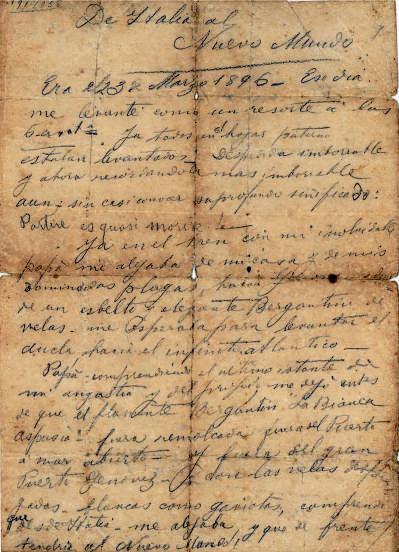 De Italia al
Nuevo Mundo
Era el 23 de Marzo 1896 - Ese dia
me levante como un resorte a las
6 a m. Ya todos en el hogar paterno
estaban levantados - Despedida imborrable
y ahora recordandola mas imborrable
aun - sin casi conocer su profundo significado:
Partire es quasi morire
Ya en el tren con mi inolvidable
papá me alejaba de mi casa y de mis
playas, hacia
de un esbelto y elegante Bergantin de
velas - me esperaba para levantar el
ancla hacia el infinito atlantico -
Papá - comprendiendo el ultimo instante de
mi angustia y del me dejó antes
de que el flamante Bergantin "La Bianca
aspasia" fuera remolcada fuera del Puerto
a mar abierto - y fuera del gran
Puerto Genovez - y con las velas desple
gadas - blancas como gaviotas, comprendi
que desde Italia - me alejaba, y que de frente
tendria al Nuevo Mundo!